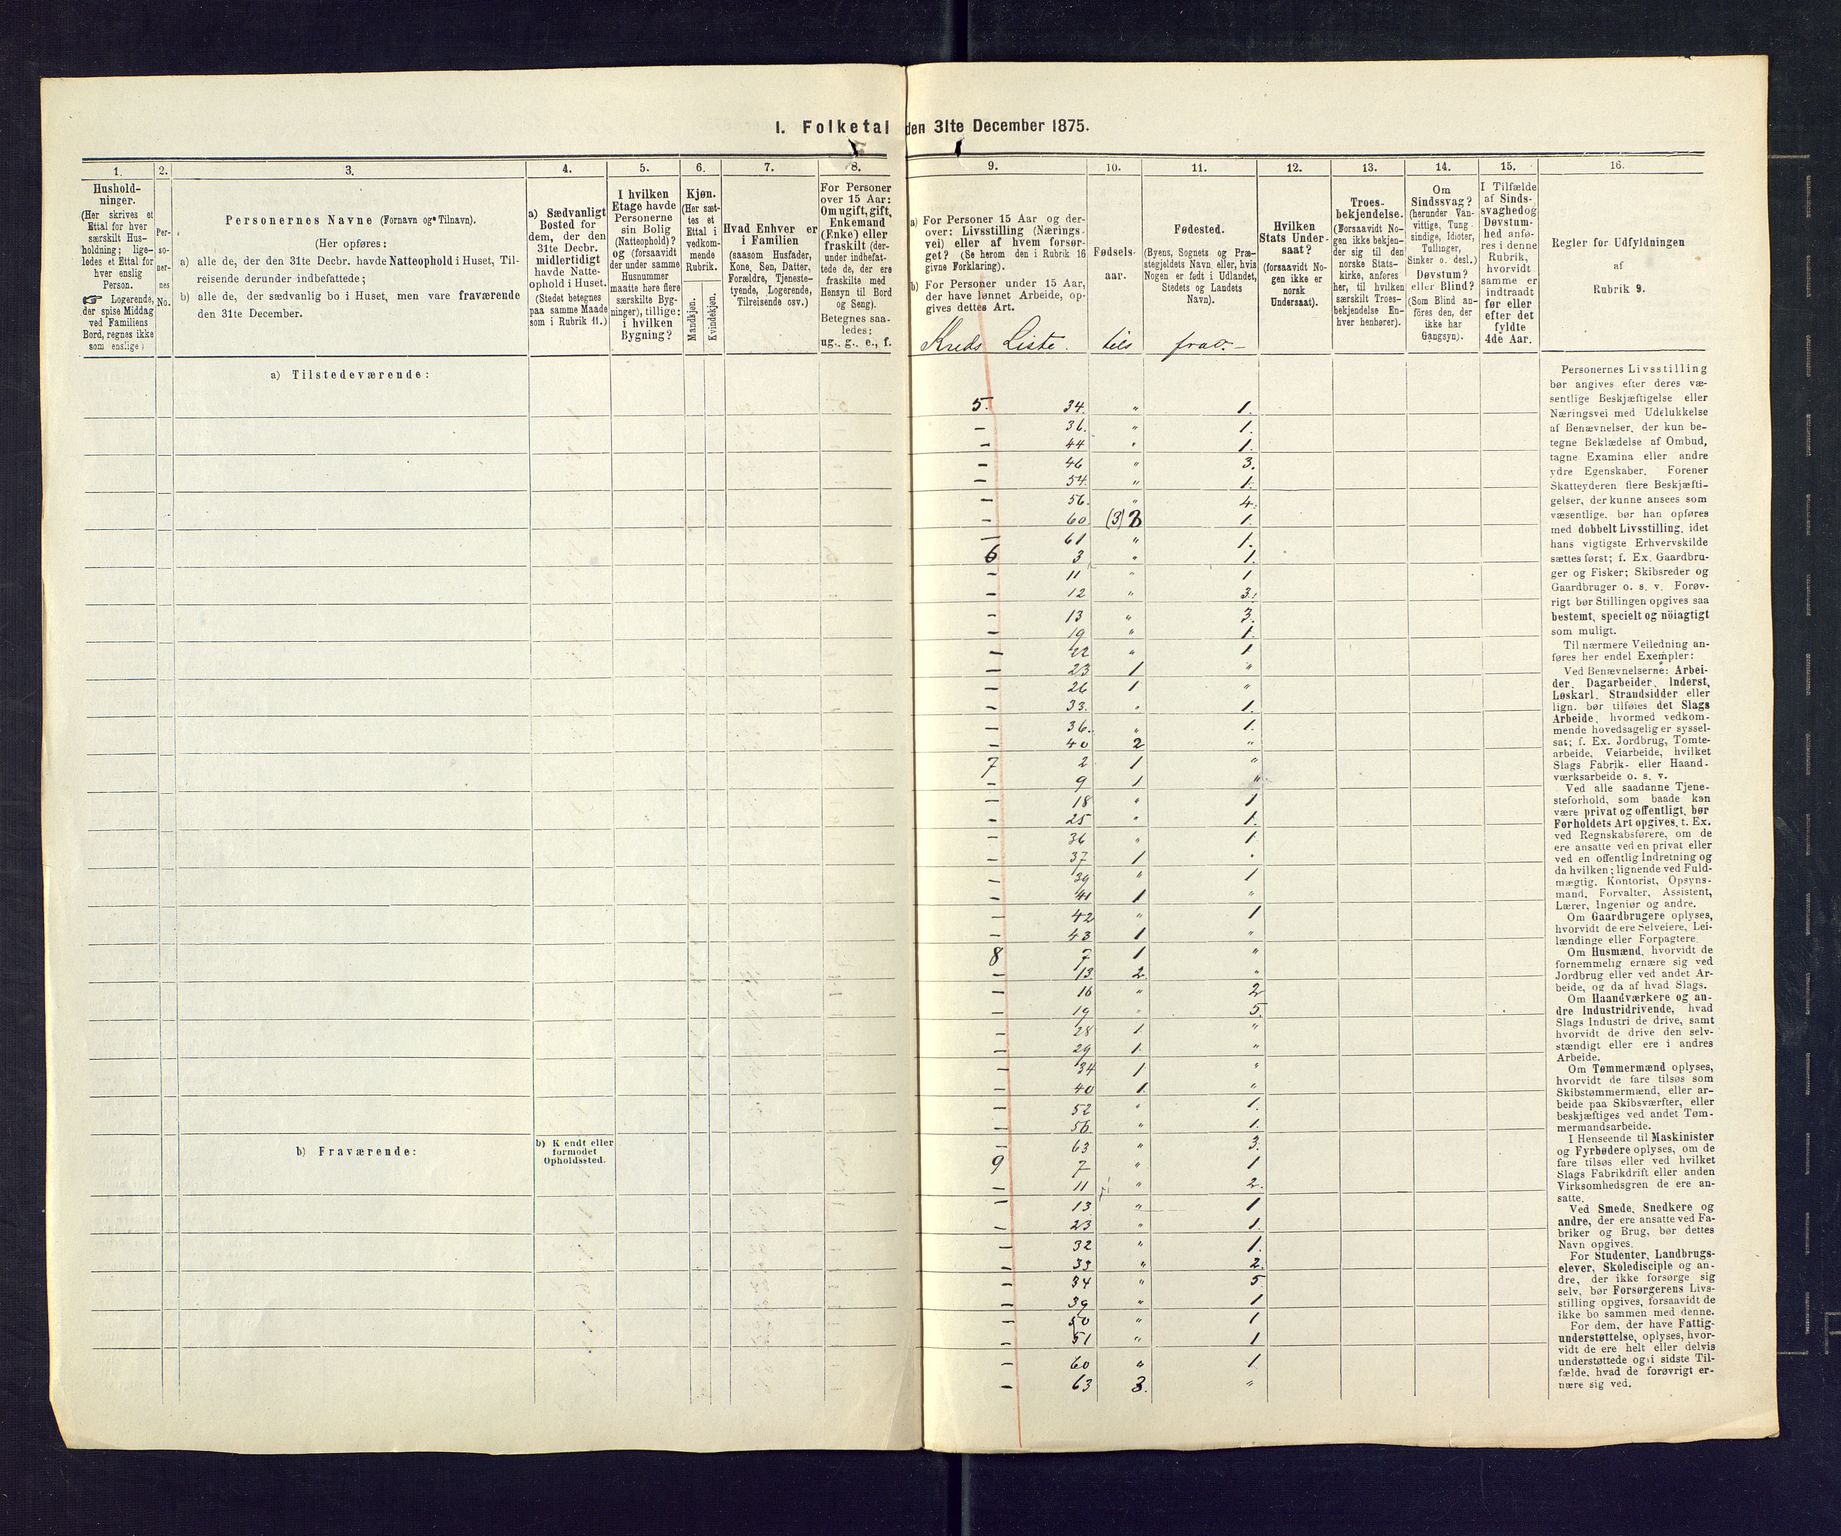 I. Folketal den 31te December 1875.
1.
Hushold-
ninger.
(Her skrives et
Ettal for hver
særskilt Hus-
holdning; lige-
ledes et Ettal for
hver enslig
Person.
☞ Logerende,
der spise Middag
ved Familiens
Bord, regnes ikke
som enslige)
2.
Per-
so-
ner-
nes
No.
3.
Personernes Navne (Fornavn og Tilnavn).
(Her opføres:
a) alle de, der den 31te Decbr. havde Natteophold i Huset, Til-
reisende derunder indbefattede;
b) alle de, der sædvanlig bo i Huset, men vare fraværende
den 31te December.
4.
a) Sædvanligt
Bosted for
dem, der den
31te Decbr.
midlertidigt
havde Natte-
ophold i Huset.
(Stedet betegnes
paa samme Maade
som i Rubrik 11.)
5.
I hvilken
Etage havde
Personerne
sin Bolig
(Natteophold)?
og (forsaavidt
der under samme
Husnummer
maatte høre flere
særskilte Byg-
ninger), tillige:
i hvilken
Bygning?
6.
Kjøn.
(Her sæt-
tes et
Ettal i
vedkom-
mende
Rubrik.
Mandkjøn.
Kvindekjøn.
7.
Hvad Enhver er
i Familien
(saasom Husfader,
Kone, Søn, Datter,
Forældre, Tjeneste-
tyende, Logerende,
Tilreisende osv.)
8.
For Personer
over 15 Aar:
Om ugift, gift,
Enkemand
(Enke) eller
fraskilt (der-
under indbefat-
tede de, der ere
fraskilte med
Hensyn til Bord
og Seng).
Betegnes saa-
ledes:
ug., g., e., f.
9.
a) For Personer 15 Aar og der-
over: Livsstilling (Nærings-
vei) eller af hvem forsør-
get? (Se herom den i Rubrik 16
givne Forklaring).
b) For Personer under 15 Aar,
der have lønnet Arbeide, op-
gives dettes Art.
10.
Fødsels-
aar.
11.
Fødested.
(Byens, Sognets og Præ-
stegjeldets Navn eller, hvis
Nogen er født i Udlandet,
Stedets og Landets
Navn).
12.
Hvilken
Stats Under-
saat?
(forsaavidt No-
gen ikke er
norsk
Undersaat).
13.
Troes-
bekjendelse.
(Forsaavidt No-
gen ikke bekjen-
der sig til den
norske Stats-
kirke, anføres
her, til hvilken
særskilt Troes-
bekjendelse En-
hver henhører).
14.
Om
Sindssvag?
(herunder Van-
vittige, Tung-
sindige, Idioter,
Tullinger,
Sinker o. desl.)
Døvstum?
eller Blind?
(Som Blind an-
føres den, der
ikke har
Gangsyn).
15.
I Tilfælde
af Sinds-
svaghed og
Døvstum-
hed anfø-
res i denne
Rubrik,
hvorvidt
samme er
indtraadt
før eller
efter det
fyldte
4de Aar.
16.
Regler for Udfyldningen
af
Rubrik 9.
Kreds Liste. tils frav.
a) Tilstedeværende:
5. 34. " 1.
– 36. " 1.
– 44 " 1.
– 46 " 3.
– 54. " 1.
– 56. " 4.
– 60 (3) 3 1.
– 61 " 1.
6 3 " 1.
– 11 " 1
– 12 " 3.
– 13 " 3.
– 19 " 1.
– 22 " 1
– 23 1 "
– 26 1 "
– 33. " 1.
– 36. " 1.
– 40 2 "
7 2 1 "
– 9 1 "
– 18 " 1
– 25 " 1.
– 36 " 1.
– 37 1 "
– 39 " 1
– 41 1 "
– 42 " 1
– 43 1 "
8 7 1 "
– 13. 2. "
– 16 " 2
– 19 " 5.
– 28 1. "
– 29 1. "
– 34 1 "
– 40 1. "
– 52 " 1.
– 56. " 1.
– 63 " 3.
9 7 " 1
– 11 " 2.
– 13. " 1
– 23 " 1.
– 32 " 1.
– 33 " 2.
– 34 " 5
– 39 " 1
– 50 " 1
– 51 " 1
– 60 " 1
– 63 3. "
b) Fraværende:
b) Kjendt eller
formodet
Opholdssted.
Personernes Livsstilling
bør angives efter deres væ-
sentlige Beskjæftigelse eller
Næringsvei med Udelukkelse
af Benævnelser, der kun be-
tegne Beklædelse af Ombud,
tagne Examina eller andre
ydre Egenskaber. Forener
Skatteyderen flere Beskjæfti-
gelser, der kunne ansees som
væsentlige, bør han opføres
med dobbelt Livsstilling, idet
hans vigtigste Erhvervskilde
sættes først; f. Ex. Gaardbru-
ger og Fisker; Skibsreder og
Gaardbruger o. s. v. Forøv-
rigt bør Stillingen opgives saa
bestemt, specielt og nöiagtigt
som muligt.
Til nærmere Veiledning an-
føres her endel Exempler:
Ved Benævnelserne: Arbei-
der, Dagarbeider, Inderst,
Løskarl, Strandsidder eller
lign. bør tilføies det Slags
Arbeide, hvormed vedkom-
mende hovedsagelig er syssel-
sat; f. Ex. Jordbrug, Tomte-
arbeide, Veiarbeide, hvilket
Slags Fabrik- eller Haand-
værksarbeide o. s. v.
Ved alle saadanne Tjene-
steforhold, som baade kan
være privat og offentligt, bør
Forholdets Art opgives, t. Ex.
ved Regnskabsførere, om de
ere ansatte ved en privat eller
ved en offentlig Indretning og
da hvilken; lignende ved Fuld-
mægtig, Kontorist, Opsyns-
mand, Forvalter, Assistent,
Lærer, Ingeniør og andre.
Om Gaardbrugere oplyses,
hvorvidt de ere Selveiere, Lei-
lændinge eller Forpagtere.
Om Husmænd, hvorvidt de
fornemmelig ernære sig ved
Jordbrug eller ved andet Ar-
beide, og da af hvad Slags.
Om Haandværkere og an-
dre Industridrivende, hvad
Slags Industri de drive, samt
hvorvidt de drive den selv-
stændigt eller ere i andres
Arbeide.
Om Tømmermænd oplyses,
hvorvidt de fare tilsøs som
Skibstømmermænd, eller ar-
beide paa Skibsværfter, eller
beskjæftiges ved andet Tøm-
mermandsarbeide.
I Henseende til Maskinister
og Fyrbødere oplyses, om de
fare tilsøs eller ved hvilket
Slags Fabrikdrift eller anden
Virksomhedsgren de ere an-
satte.
Ved Smede, Snedkere og
andre, der ere ansatte ved Fa-
briker og Brug, bør dettes
Navn opgives.
For Studenter, Landbrugs-
elever, Skoledisciple og an-
dre, der ikke forsørge sig
selv, bør Forsørgerens Livs-
stilling opgives, forsaavidt de
ikke bo sammen med denne.
For dem, der have Fattig-
understøttelse, oplyses, hvor-
vidt de ere helt eller delvis
understøttede og i sidste Til-
fælde, hvad de forøvrigt er-
nære sig ved.